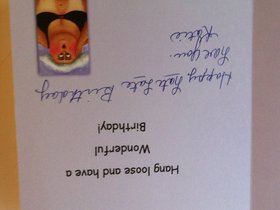 Hang loose and have a
Wonderful
Birthday!
Happy Late Late Birthday
Love you.
Katie